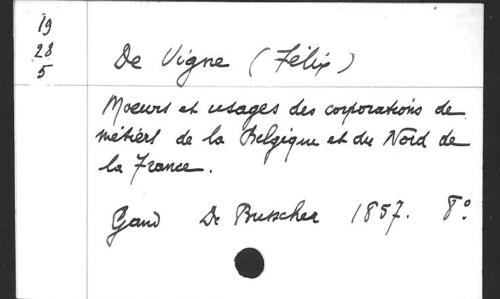 19
28
5
De Vigne (Félix)
Moeurs et usages des corporations de
métiers de la Belgique et du Nord de
la France.
Gand De Busscher 1857. 8°